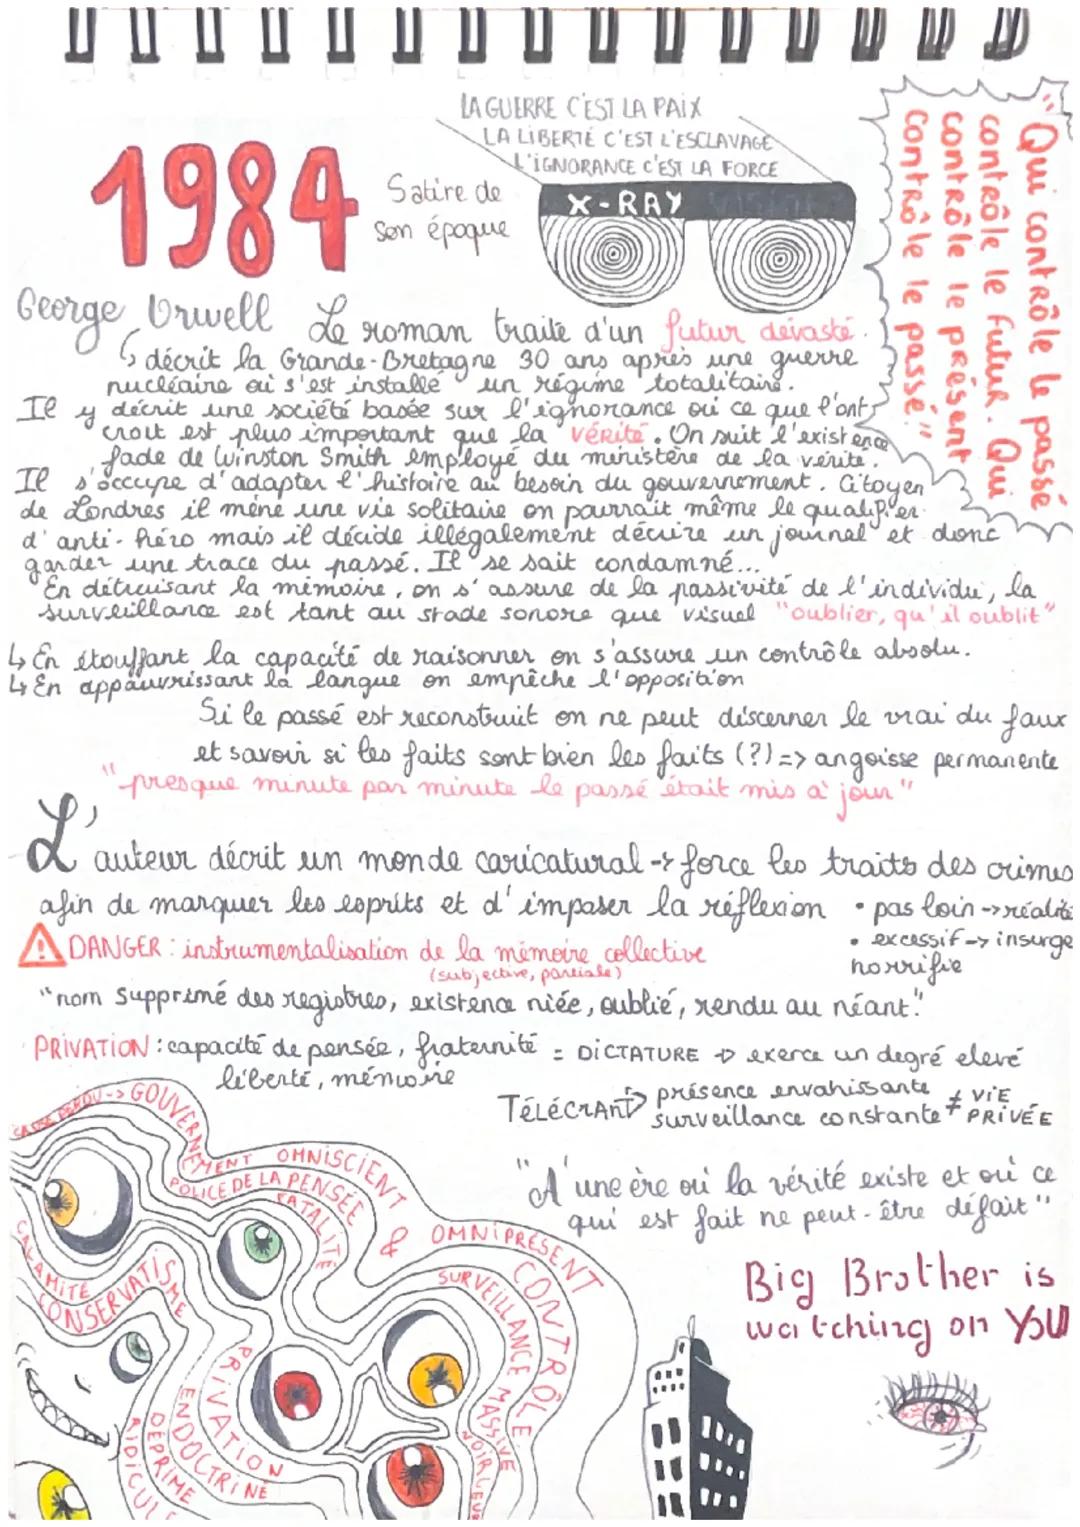 LA GUERRE C'EST LA PAIX
LA LIBERTÉ C'EST L'ESCLAVAGE
L'IGNORANCE C'EST LA FORCE
1984
Satire de
son époque
X-RAY VISION
"Qui contrôle le passé
contrôle le futur. Qui
contrôle le présent
contrôle le passé."
George Orwell
Le roman traite d'un futur dévasté.
↳ décrit la Grande-Bretagne 30 ans après une guerre
nucléaire où s'est installé un régime totalitaire.
Il y décrit une société basée sur l'ignorance où ce que l'ont
croit est plus important que la vérité. On suit l'existence
fade de Winston Smith employé du ministère de la vérité.
Il s'occupe d'adapter l'histoire au besoin du gouvernement. Citoyen
de Londres il mène une vie solitaire on pourrait même le qualifier
d'anti-héro mais il décide illégalement décrire un journal et donc
garder une trace du passé. Il se sait condamné...
En détruisant la mémoire, on s'assure de la passivité de l'individu, la
surveillance est tant au stade sonore que visuel "oublier, qu'il oublit"
↳ En étouffant la capacité de raisonner on s'assure un contrôle absolu.
↳ En appauvrissant la langue on empêche l'opposition
Si le passé est reconstruit on ne peut discerner le vrai du faux
et savoir si les faits sont bien les faits (?) => angoisse permanente
"presque minute par minute le passé était mis à jour"
L'auteur décrit un monde caricatural -> force les traits des crimes
afin de marquer les esprits et d'imposer la réflexion
• pas loin -> réalité
• excessif -> insurge
horrifie
DANGER : instrumentalisation de la mémoire collective
(subjective, partiale)
"nom supprimé des registres, existence niée, oublié, rendu au néant."
PRIVATION : capacité de pensée, fraternité = DICTATURE -> exerce un degré elevé
liberté, mémoire
TÉLÉCRANT -> présence envahissante ≠ VIE
surveillance constante PRIVÉE
"A une ère où la vérité existe et où ce
qui est fait ne peut-être défait"
Big Brother is
watching on YOU
CAUSE PERDU -> GOUVERNEMENT OMNISCIENT & OMNIPRÉSENT
POLICE DE LA PENSÉE
FATALITÉ
CONTRÔLE
SURVEILLANCE MASSIVE
NOIRCEUR
CALAMITÉ
CONSERVATISME
PRIVATION
ENDOCTRINÉ
DÉPRIME
RIDICULE